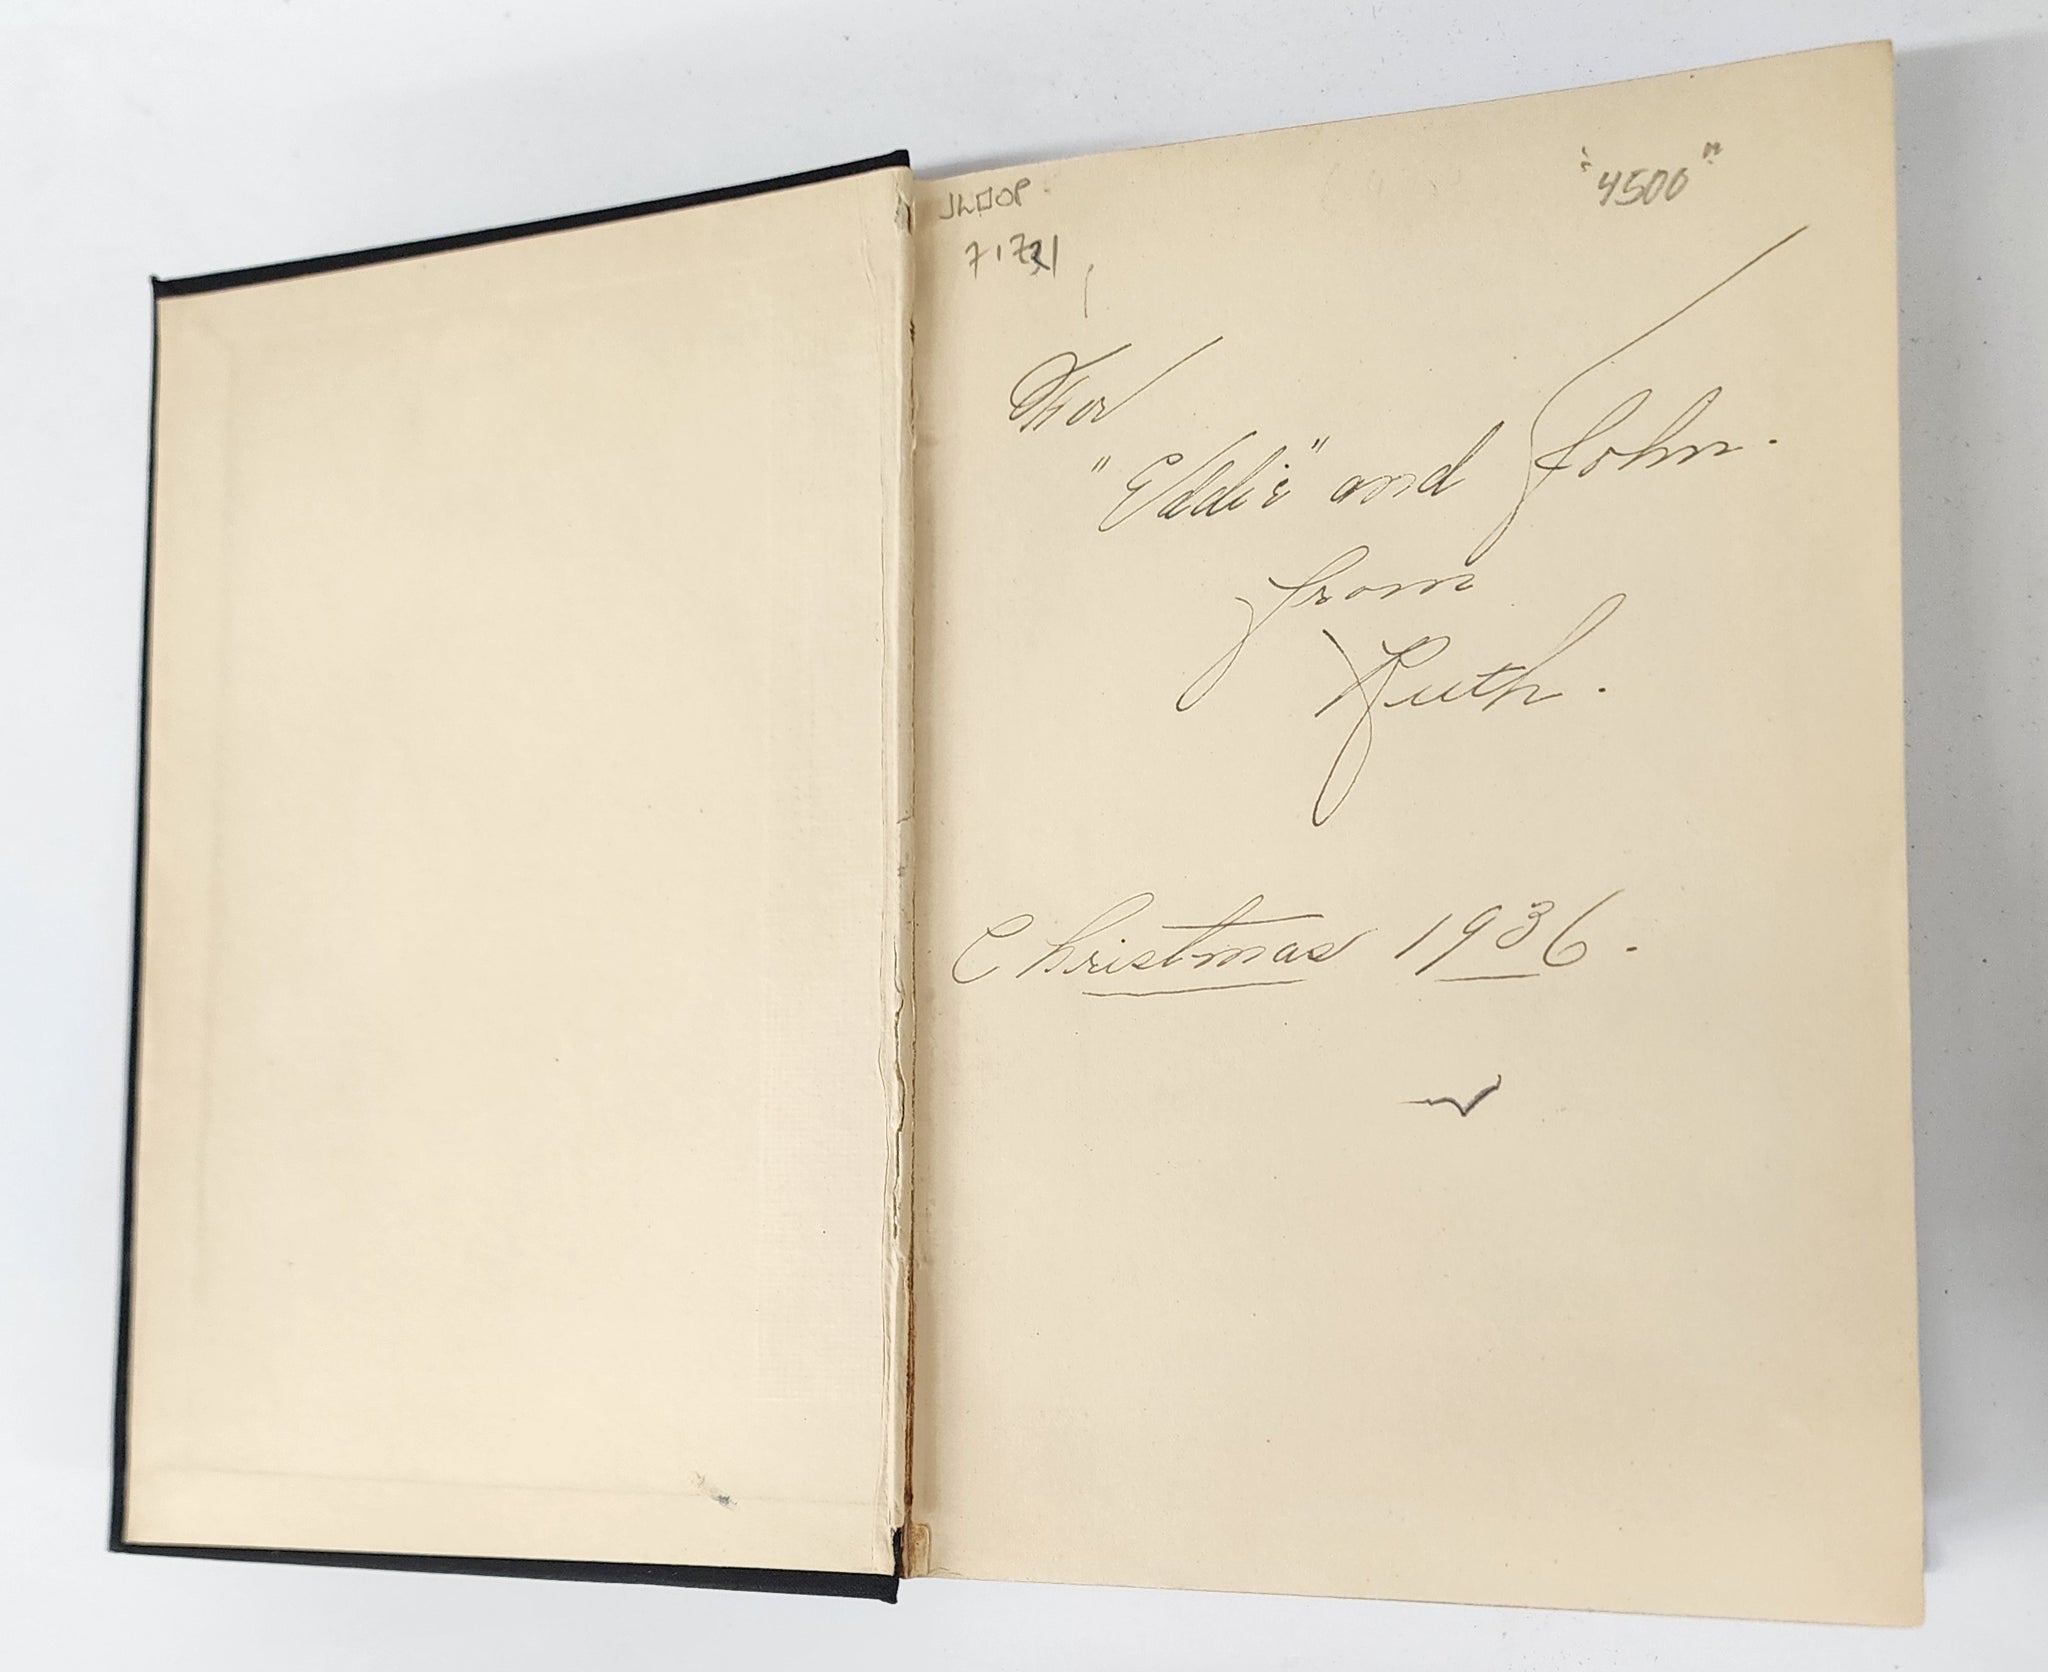 "4500"
For
"Eddie" and John.
from
Ruth.
Christmas 1936.